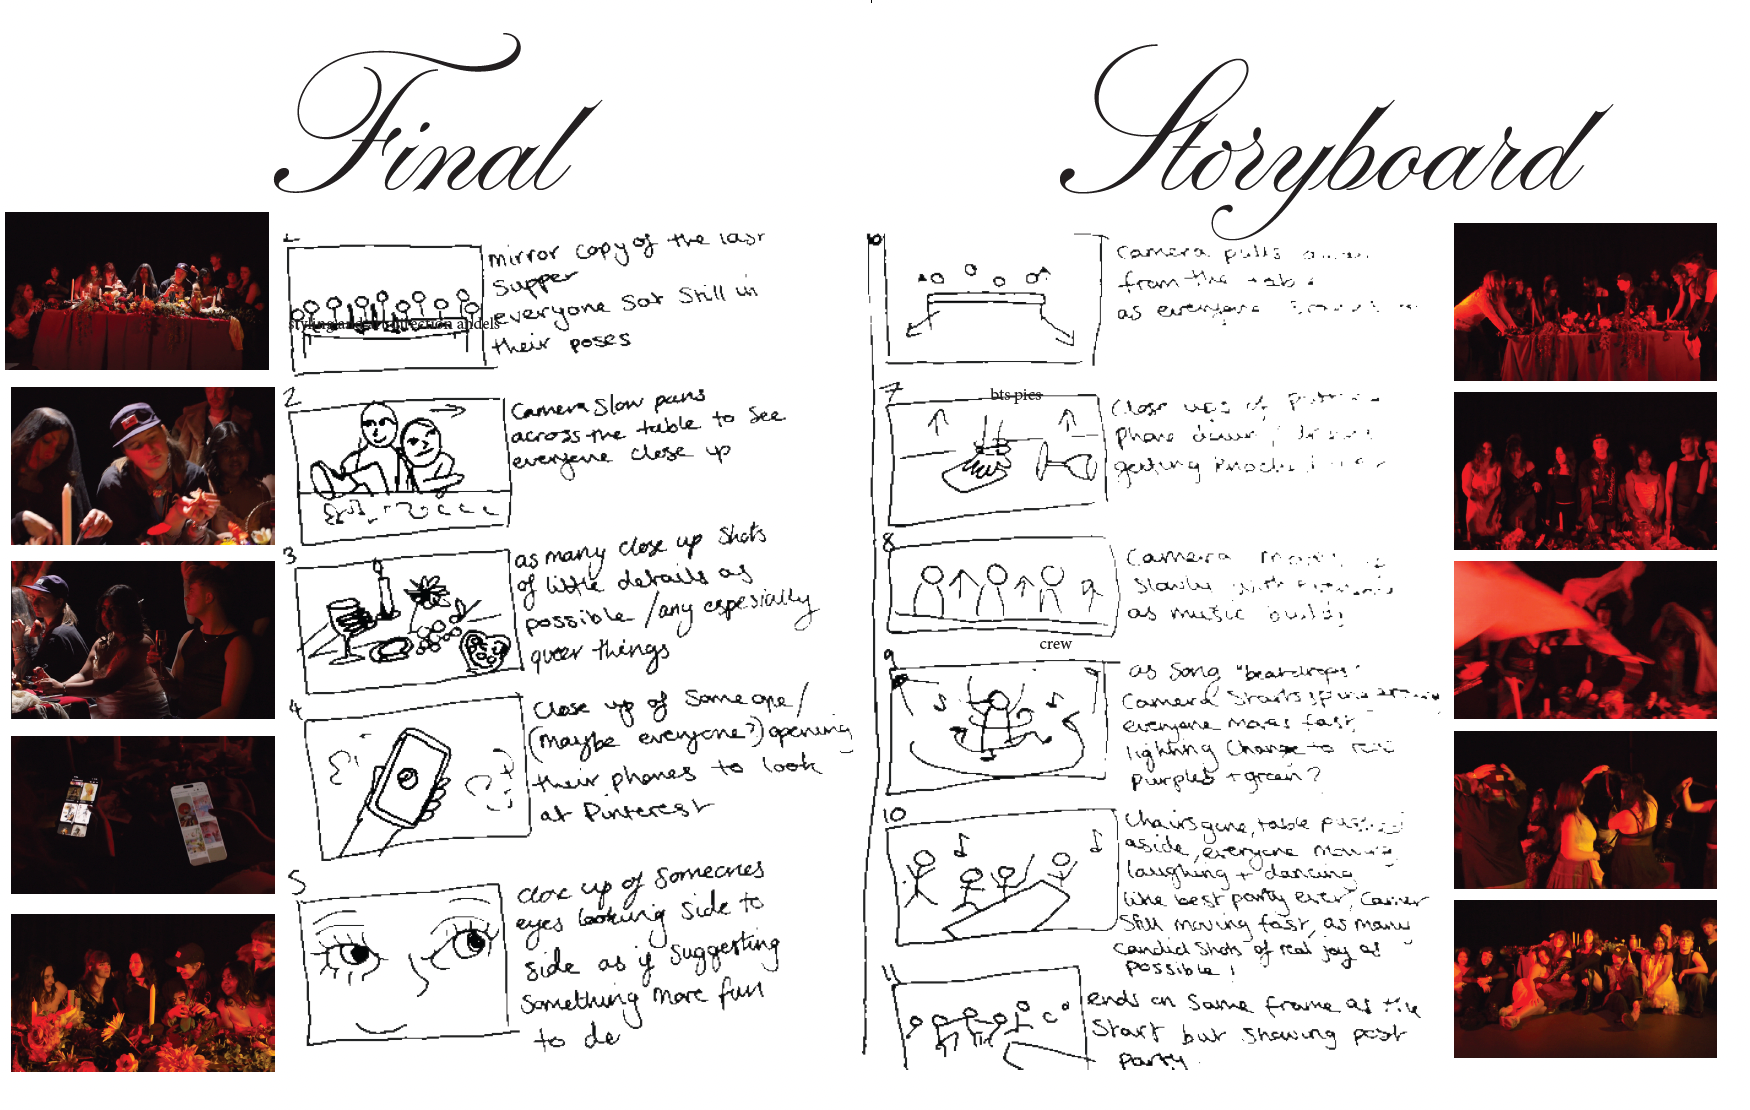 Final
Storyboard
1
mirror copy of the last
supper
everyone sat still in
their poses
2
Camera slow pans
across the table to see
everyone close up
3
as many close up shots
of little details as
possible / any espesially
queer things
4
close up of someone/
(maybe everyone?) opening
their phones to look
at Pinterest
5
close up of someones
eyes looking side to
side as if suggesting
something more fun
to do
6
Camera pulls
from the
as everyone
7
bts pics
Close ups of
phone down /
getting
8
Camera
slowly with
as music builds
crew
9
as song "beatdrops"
Camera starts
everyone moves fast,
lighting change to
purples + green?
10
Chairs gone, table
aside, everyone moving
laughing + dancing
like best party ever,
still moving fast, as many
candid shots of real joy as
possible!
11
ends on same frame as the
start but showing post
party